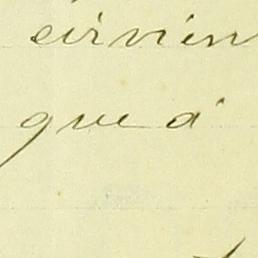 sirvien
que á